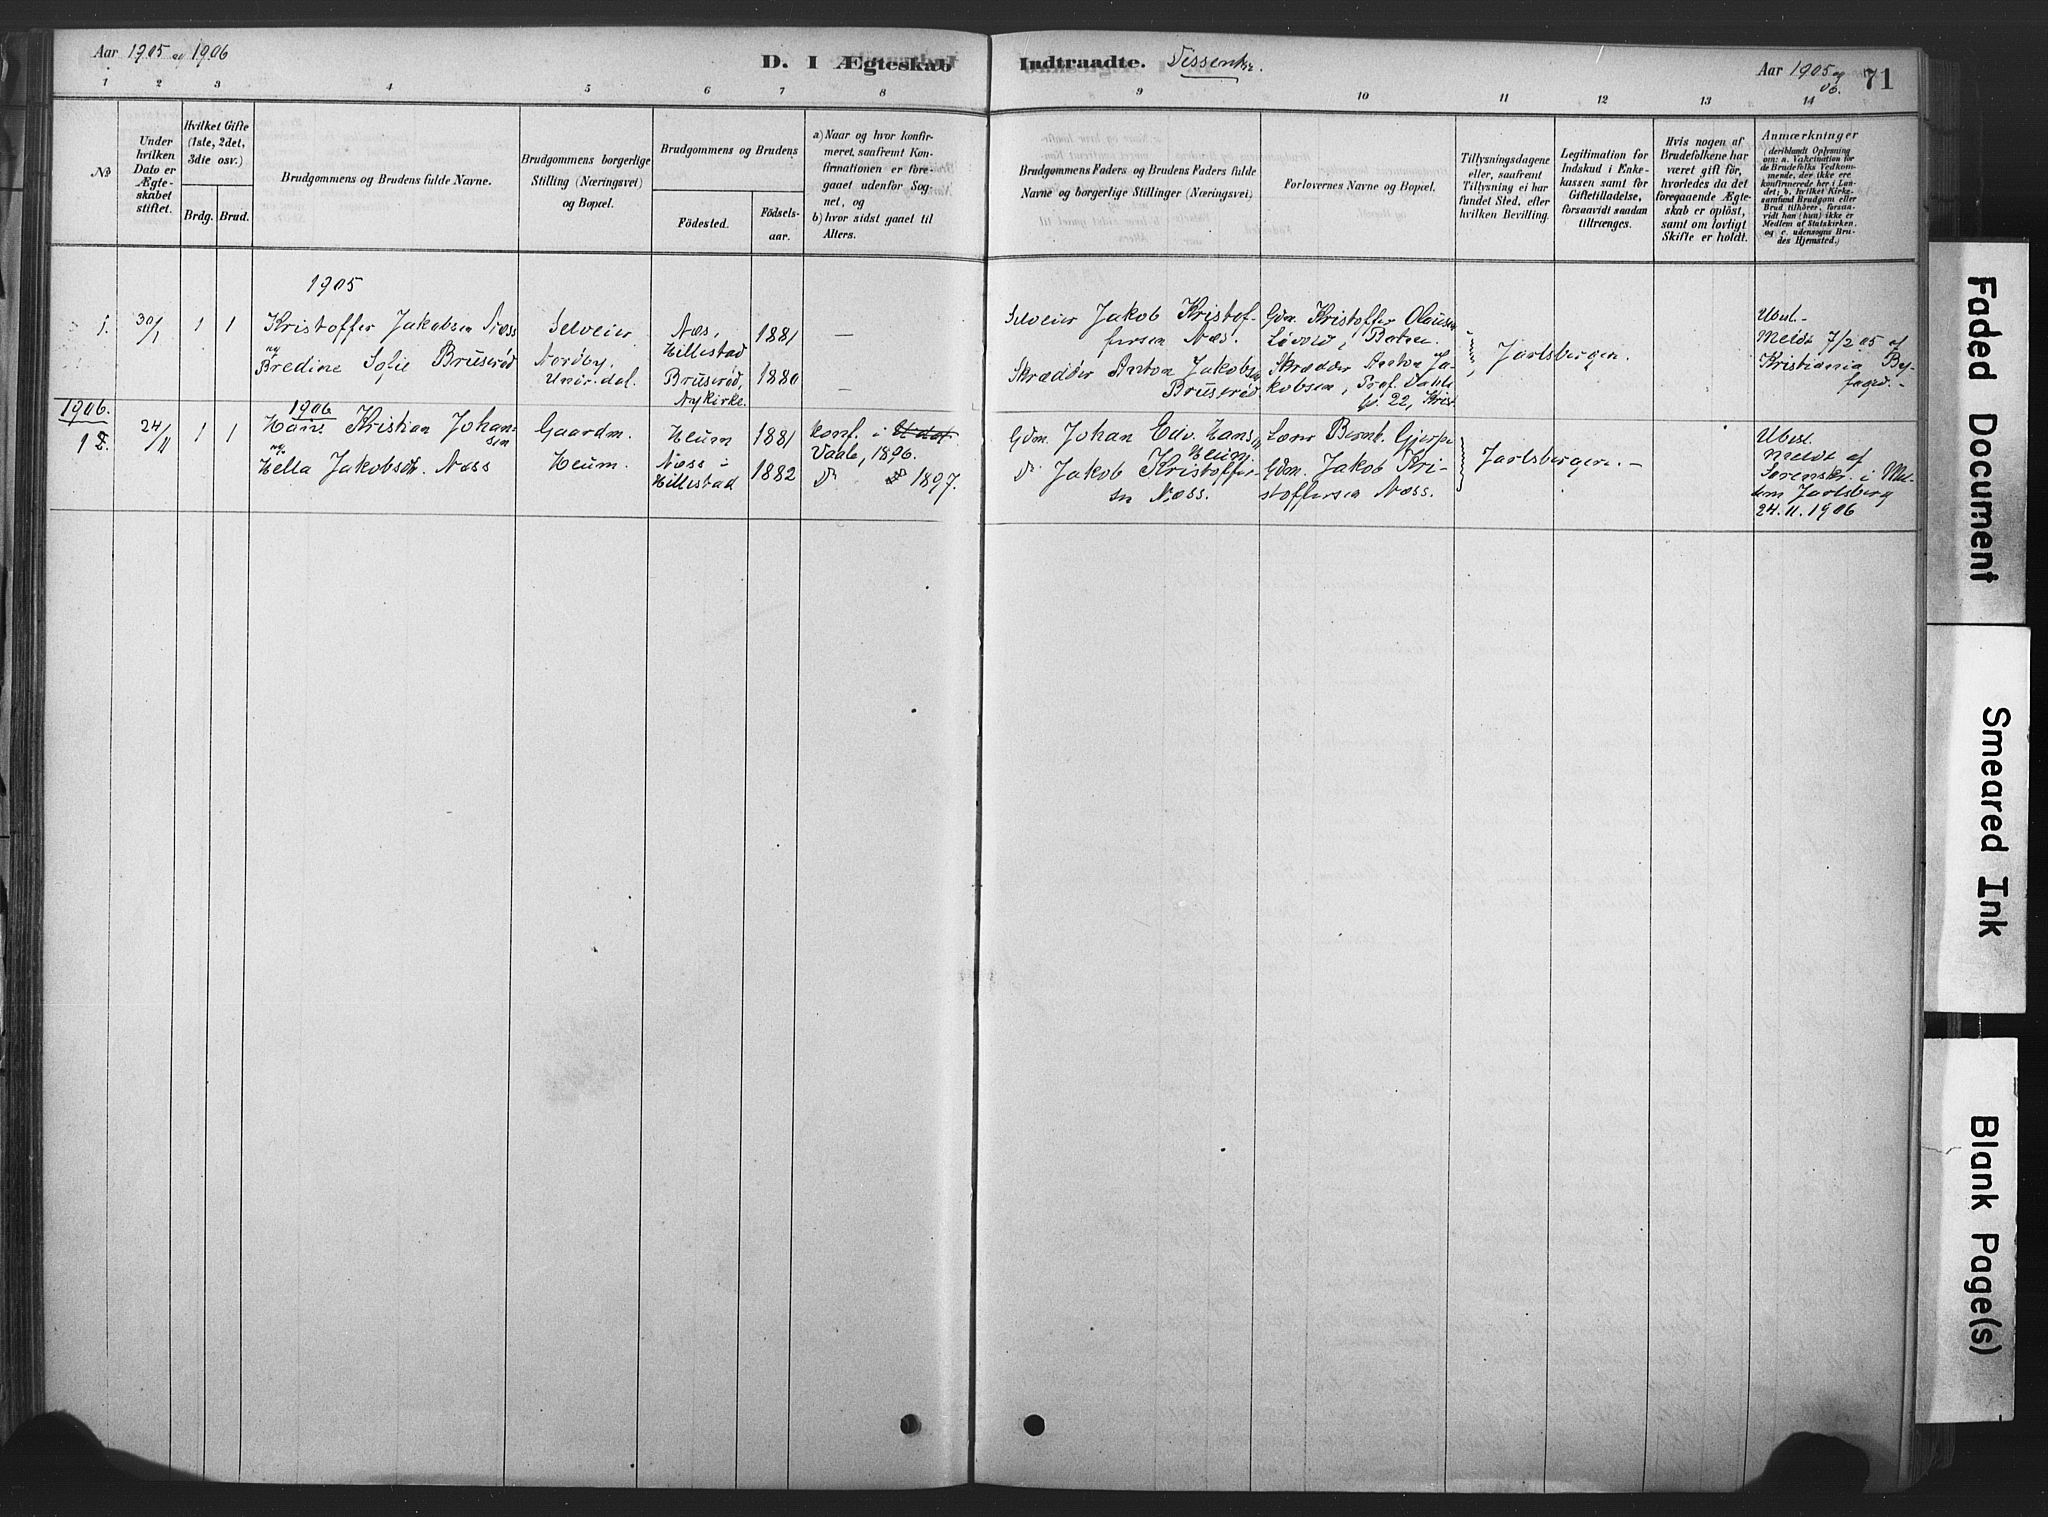 Aar 1905 og 1906
D. I Ægteskab Indtraadte. Dissentr.
Aar 1905 og 06.
71
1 2 3 4 5 6 7 8 9 10 11 12 13 14
No
Under hvilken Dato er Ægteskabet stiftet.
Hvilket Gifte (1ste, 2det, 3die osv.)
Brdg. Brud.
Brudgommens og Brudens fulde Navne.
Brudgommens borgerlige Stilling (Næringsvei) og Bopæl.
Brudgommens og Brudens
Fødested. Fødselsaar.
a) Naar og hvor konfirmeret, saafremt Konfirmationen er foregaaet udenfor Sognet, og
b) hvor sidst gaaet til Alters.
Brudgommens Faders og Brudens Faders fulde Navne og borgerlige Stillinger (Næringsvei)
Forlovernes Navne og Bopæl.
Tillysningsdagene eller, saafremt Tillysning ei har fundet Sted, efter hvilken Bevilling.
Legitimation for Indskud i Enkekassen samt for Giftetilladelse, forsaavidt saadan tiltrænges.
Hvis nogen af Brudefolkene har været gift før, hvorledes da det foregaaende Ægteskab er opløst, samt om lovligt Skifte er holdt.
Anmærkninger
(deriblandt Oplysning om: a. Vakcination for de Brudefolks Vedkommende, der ikke ere konfirmerede her i Landet; b. hvilket Kirkesamfund Brudgom eller Brud tilhører, forsaavidt han (hun) ikke er Medlem af Statskirken, og c. udensogns Brudes Hjemsted.)
1905
1. 30/1 1 1
Kristoffer Jakobsen Næss
og
Bredine Sofie Bruserød
Selveier
Nordby,
Undr.dal.
Næs,
Hillestad
1881
—
Bruserød,
Nykirke.
1880
—
Selveier Jakob Kristoffersen Næs.
Skrædder Anton Jakobsen
Bruserød
Gdm. Kristoffer Olausen
Løvold, Botne.
Skrædder Anton Jakobsen, Prof. Dahls
G. 22, Krist.
Jarlsbergeren.
Meldt 7/2 05 af
Kristiania Byfoged. -
1906.
1906
1 24/11 1 1
Hans Kristian Johansen
og
Hella Jakobsdt. Næss
Gaardm.
Heum.
Heum
1881
Næss i
Hillestad
1882
Konf. i
Vaale, 1896.
Do 1897.
Gdm. Johan Edv. Hansen
Heum
Do Jakob Kristoffersen Næss.
Lærer Bernt. Gjerpe
Gdm. Jakob Kristoffersen Næss.
Jarlsbergeren. -
Meldt af
Sorenskr. i Meldem Jarlsberg
24.11.1906
Faded Document
Smeared Ink
Blank Page(s)